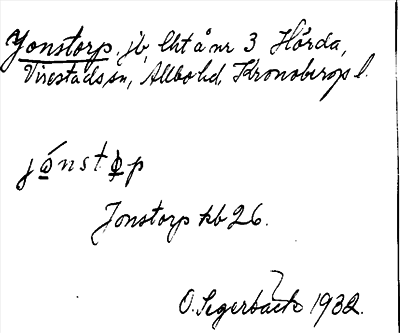 Jonstorp, jb, lht å nr 3 Hörda,
Virestads sn, Allbo hd, Kronobergs l.
jo̲nsto̲p
Jonstorp kb 26.
O. Segerbäck 1932.